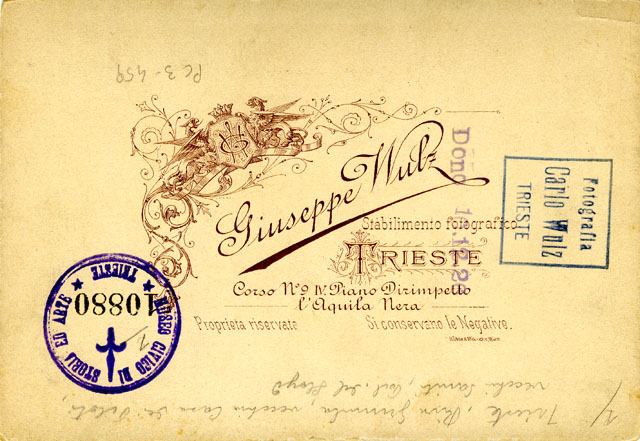 Pc 3-459
Giuseppe Wulz
Stabilimento fotografico
TRIESTE
Corso Nº 9 IV Piano Dirimpetto
l'Aquila Nera
Proprietà riservata Si conservano le Negative.
Dono
Fotografia
Carlo Wulz
TRIESTE
MUSEO CIVICO DI STORIA ED ARTE
★ TRIESTE ★
10880
1/
1/ Trieste, Riva Grumula, vecchia Casa dei Piloti,
vecchia Sanità, del Lloyd